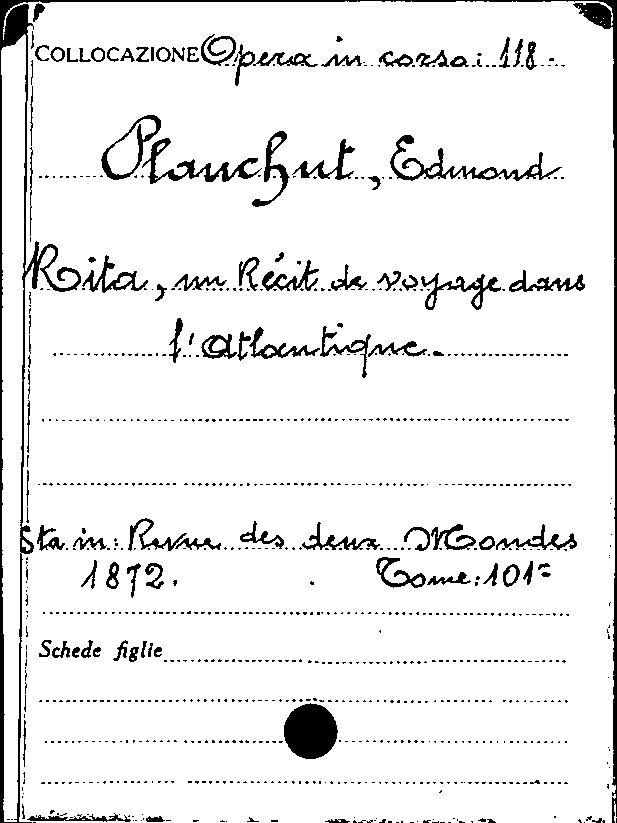 COLLOCAZIONE Opera in corso: 118.
Plauchut, Edmond
Rita, un Récit de voyage dans
l'Atlantique.
Sta in: Revue des deux Mondes
1872. Tome: 101=
Schede figlie